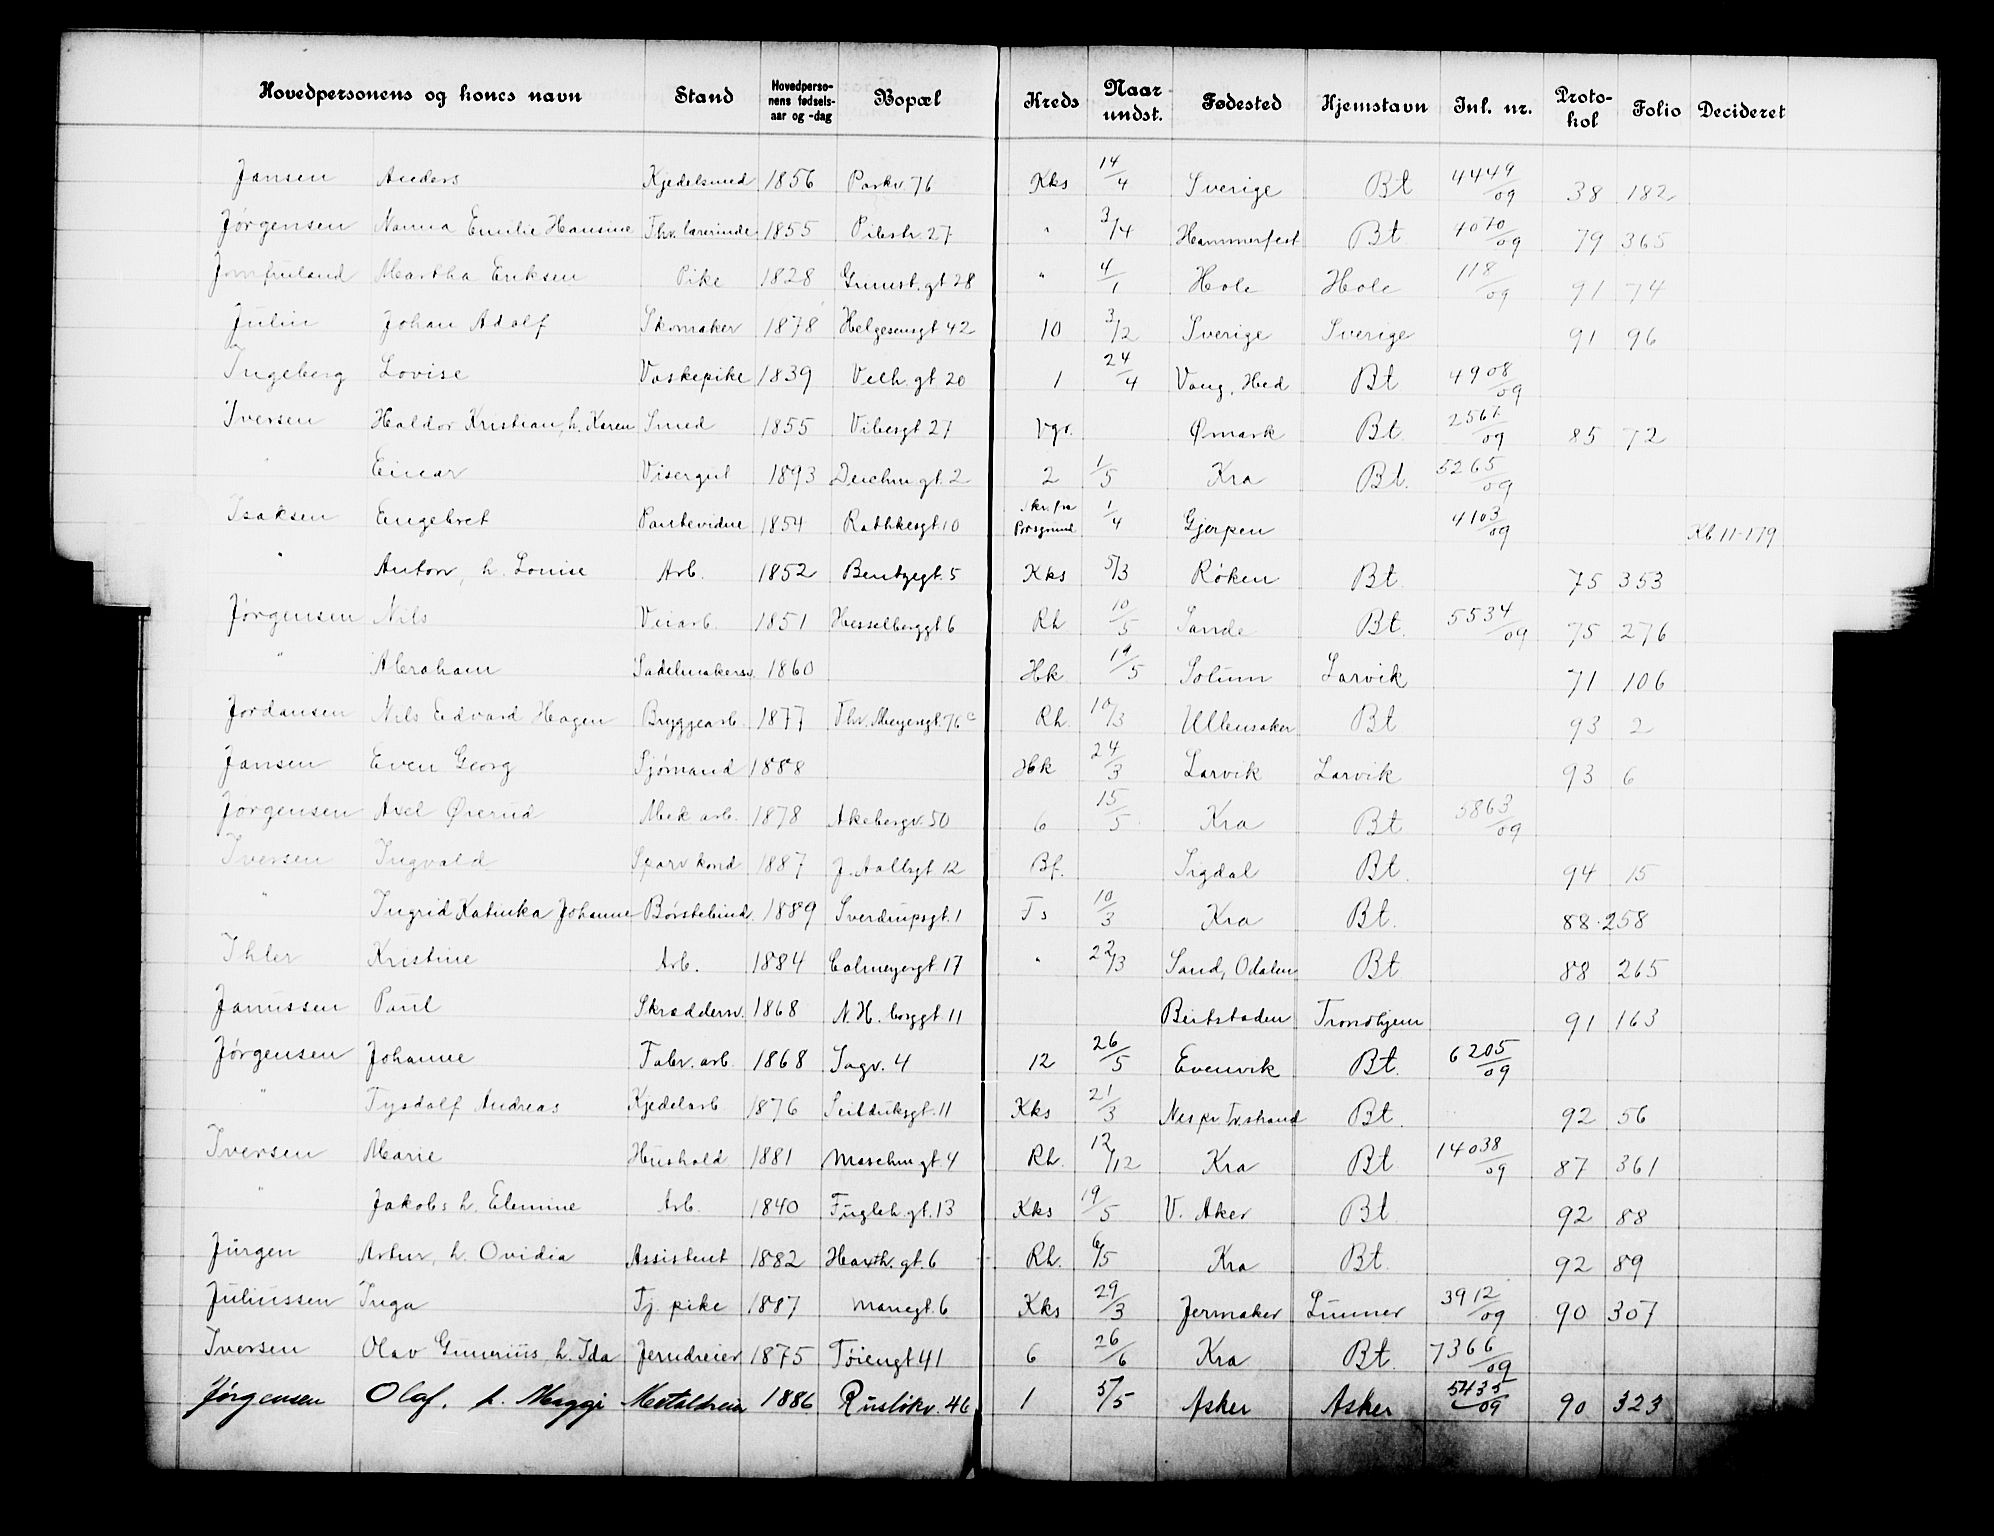 Hovedpersonens og kones navn Stand Hovedpersonens fødselsaar og -dag Bopæl Kreds Naar undst. Fødested Hjemstavn Inl. nr. Protokol Folio Decideret
Jansen Anders Kjedelsmed 1856 Parkv. 76 Kks 14/4 Sverige Bt 4449/09 38 182
Jørgensen Nanna Emilie Hansine Fhv. lærerinde 1855 Pilestr. 27 " 3/4 Hammerfest Bt 4070/09 79 365
Jomfruland Martha Eriksen Pike 1828 Grünst. gt 28 " 4/1 Hole Hole 118/09 91 74
Julin Johan Adolf Skomaker 1878 Helgesensgt 42 10 3/12 Sverige Sverige 91 96
Ingeberg Lovise Vaskepike 1839 Velh. gt 20 1 24/4 Vang, Hed Bt 4908/09
Iversen Haldor Kristian, h. Karen Smed 1855 Vibesgt 27 Vgr. Ømark Bt. 2561/09 85 72
" Einar Visergut 1893 Deichm gt. 2 2 1/5 Kra Bt. 5265/09
Isaksen Engebret Pantevidne 1854 Rathkesgt. 10 Skr. fra Porsgrund 1/4 Gjerpen 4103/09 Kb 11-179
" Anton, h. Louise Arb. 1852 Bentzegt. 5 Kks 5/3 Røken Bt. 75 353
Jørgensen Nils Veiarb. 1851 Hesselberggt 6 Rh. 10/5 Sande Bt. 5534/09 75 276
" Abraham Sadelmakersv. 1860 Hk. 19/5 Solum Larvik 71 106
Jordansen Nils Edvard Hagen Bryggearb. 1877 Thv. Meyersgt. 76c Rh. 10/3 Ullensaker Bt 93 2
Jansen Even Georg Sjømand 1888 Hk 24/3 Larvik Larvik 93 6
Jørgensen Axel Ørerud Mek arb. 1878 Akebergv. 50 6 15/5 Kra Bt 5863/09
Iversen Ingvald Sparv kond 1887 J. Aallsgt 12 Bf. Sigdal Bt. 94 15
" Ingrid Katinka Johanne Børstebind. 1889 Sverdrupsgt. 1 Ts 10/3 Kra Bt. 88 258
Ihler Kristine Arb. 1884 Calmeyergt. 17 " 22/3 Sand, Odalen Bt 88 265
Janussen Paul Skræddersv. 1868 N. H. borggt. 11 Beitstaden Trondhjem 91 163
Jørgensen Johanne Fabr. arb. 1868 Sagv. 4 12 26/5 Evenvik Bt. 6205/09
" Tysdalf Andreas Kjedelarb 1876 Seilduksgt. 11 Kks 21/3 Nes pr. Tvstrand Bt. 92 56
Iversen Marie Hushold 1881 Maschm gt. 4 Rh. 12/12 Kra Bt 14038/09 87 361
" Jakob, h. Elemine Arb. 1840 Fugleh. gt. 13 Kks 19/5 V. Aker Bt 92 88
Jürgen Artur, h. Ovidia Assistent 1882 Haxth. gt. 6 Rh. 6/5 Kra Bt. 92 89
Juliussen Inga Tj. pike 1887 Mariegt. 6 Kks 29/3 Jevnaker Lunner 3912/09 90 307
Iversen Olav Gunerius, h. Ida Jerndreier 1875 Tøiengt 41 6 26/6 Kra Bt. 7366/09
Jørgensen Olaf, h. Maggi Metaldreier 1886 Ruseløkv. 46 1 5/5 Asker Asker 5435/09 90 323